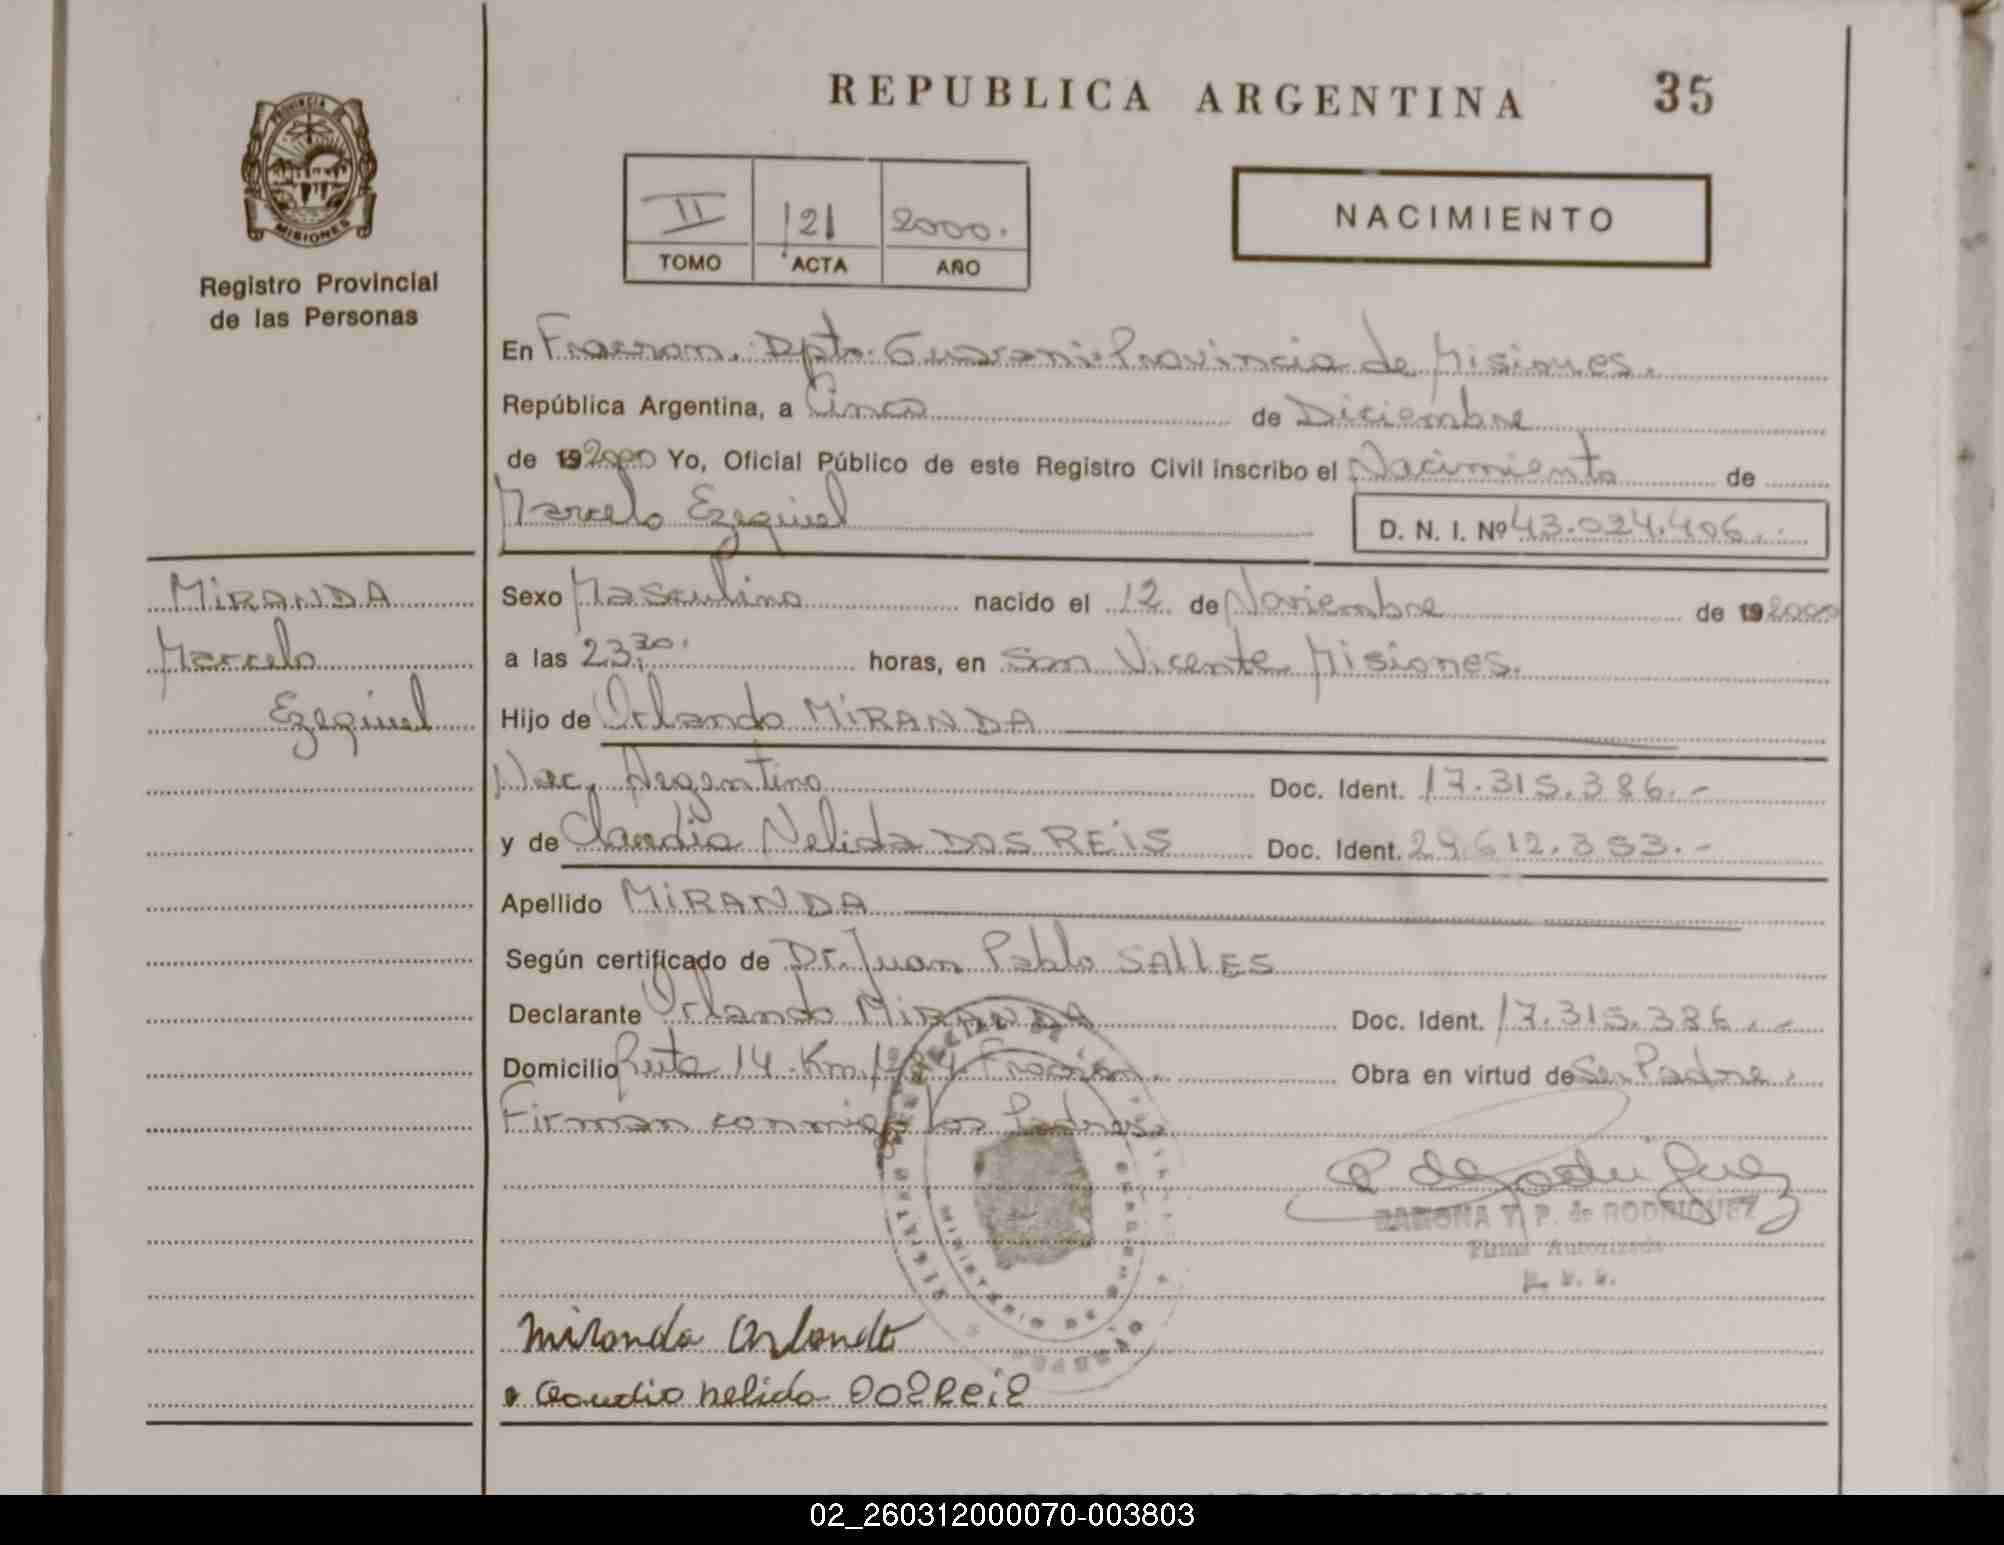 REPUBLICA ARGENTINA 35
PROVINCIA DE MISIONES
Registro Provincial
de las Personas
II 121 2000.
TOMO ACTA AÑO
NACIMIENTO
En Fracran. Dpto. Guarani-Provincia de Misiones.
República Argentina, a Cinco de Diciembre
de 19 2000 Yo, Oficial Público de este Registro Civil inscribo el Nacimiento de
Marcelo Ezequiel
D. N. I. Nº 43.024.406.
MiRANDA
Marcelo
Ezequiel
Sexo Masculino nacido el 12 de Noviembre de 19 2000
a las 23,30. horas, en San Vicente Misiones.
Hijo de Orlando MiRANDA
Nac. Argentino Doc. Ident. 17.315.386.-
y de Claudia Nelida DOS REiS Doc. Ident. 29.612.353.-
Apellido MiRANDA
Según certificado de Dr. Juan Pablo SALLES
Declarante Orlando MiRANDA Doc. Ident. 17.315.386.-
Domicilio Ruta 14 Km. Fracran. Obra en virtud de Ser Padre.
Firman conmigo los Padres.
RAMONA P. de RODRIGUEZ
Firma Autorizada
Miranda Orlando
Claudio nelida DOSReiS
02_260312000070-003803